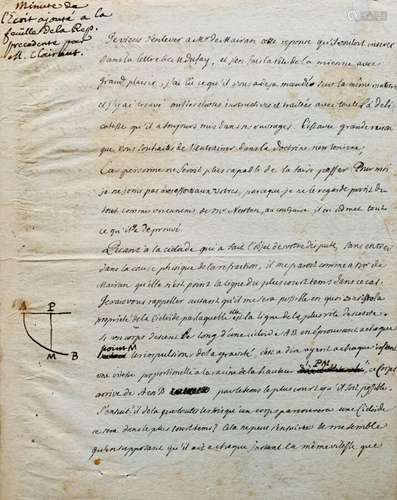 Minute de
l'Ecrit ajouté à la
feuille de la Rep.
precedente par
M. Clairaut.
Je viens d'enlever a Mr. de Mairan cette reponse qu'il vouloit inserer
dans la lettre de Mr. Dufay, et j'en fais la tête de la mienne avec
grand plaisir, j'ai lû ce qu'il vous a deja mandé sur la même matiere
et j'y ai trouvé mille choses instructives et traitées avec toute la deli
catesse qu'il a toujours mis dans ses ouvrages. C'est avec grande raison
que vous souhaités de l'entrainer dans la doctrine newtonienne
Car personne ne seroit plus capable de la faire passer. Pour moi
je ne sais pas
parceque je ne le regarde point du
tout comme ennemi de Mr. Newton, au contraire, il en admet tout
ce qu'il a de prouvé.
Quant à la cicloide qui a fait l'objet de votre dispute, sans entrer
dans la cause phisique de la refraction, il me paroit comme a Mr. de
Mairan qu'elle n'est point la ligne du plus court tems dans ce cas.
Je vais vous rappeller autant qu'il me sera possible en quoi consiste la
propriété de la Cicloide par laquelle elle est la ligne de la plus vite descente.
Si un corps descend le long d'une cicloide AB en éprouvant a chaque
point M les impulsions de la gravité, c'est a dire ayant a chaque instant
une vitesse proportionelle a la racine de la hauteur PM, ce corps
arrive de A en B par le tems le plus court qu'il soit possible.
S'ensuit-il de la que toutes les fois qu'un corps parcourera une Cicloide
ce sera dans le plus court tems? Cela ne peut s'ensuivre ce me semble
qu'en supposant qu'il aura a chaque instant la même vitesse que
A P
M B